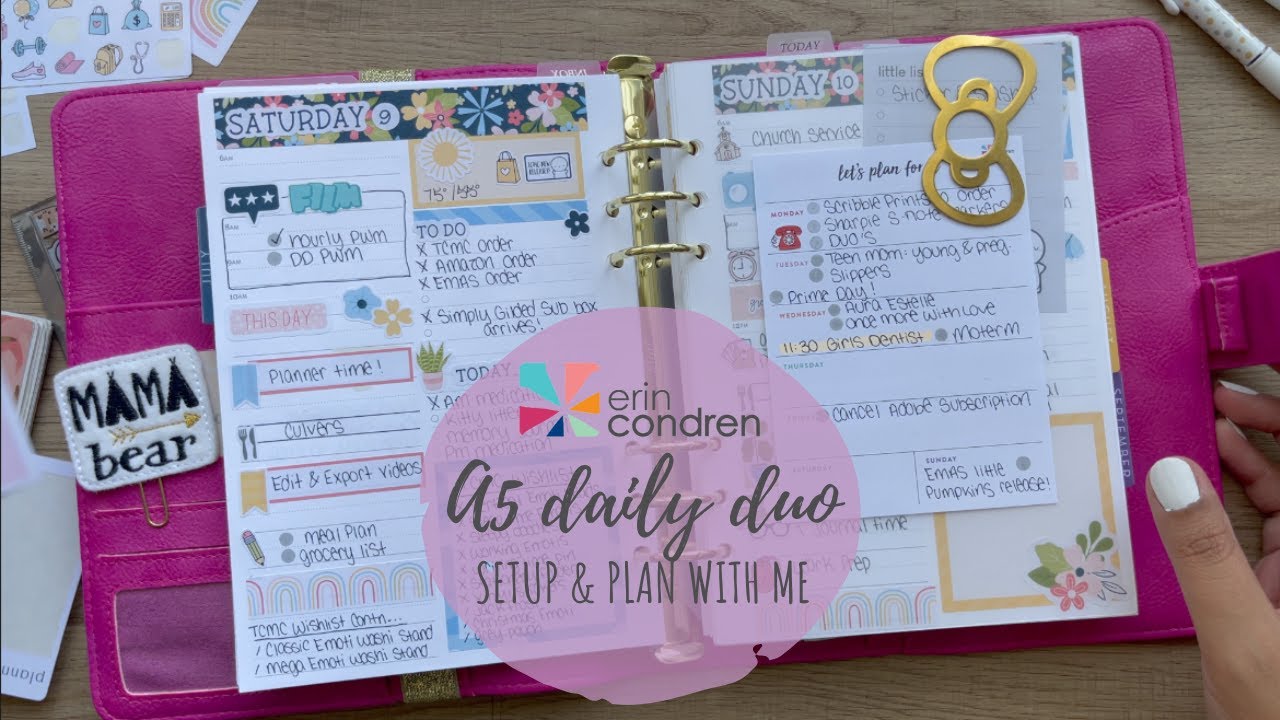 TODAY
INBOX
SATURDAY 9
6AM
FILM
8AM
✓ hourly pwm
DD PWM
10AM
THIS DAY
Planner time!
Culvers
Edit & Export videos
meal plan
grocery list
TCMC Wishlist Contn...
/ Classic Emoti washi Stand
/ mega Emoti washi Stand
TO DO
X TCMC order
X Amazon order
X EMAS order
Simply Gilded Sub box
arrives!
TODAY
SUNDAY 10
little lis
Church Service
let's plan for
MONDAY
Sharpie S-note
DUO'S
TUESDAY
Teen mom: young & preg.
Slippers
Prime Day!
WEDNESDAY
Aura Estelle
once more with Love
11:30 Girls Dentist
Moterm
THURSDAY
Cancel Adobe Subscription
SUNDAY
EMAS little
Pumpkins release!
Journal time
Prep
JULY
SEPTEMBER
MAMA
bear
plann
erin
condren
A5 daily duo
SETUP & PLAN WITH ME